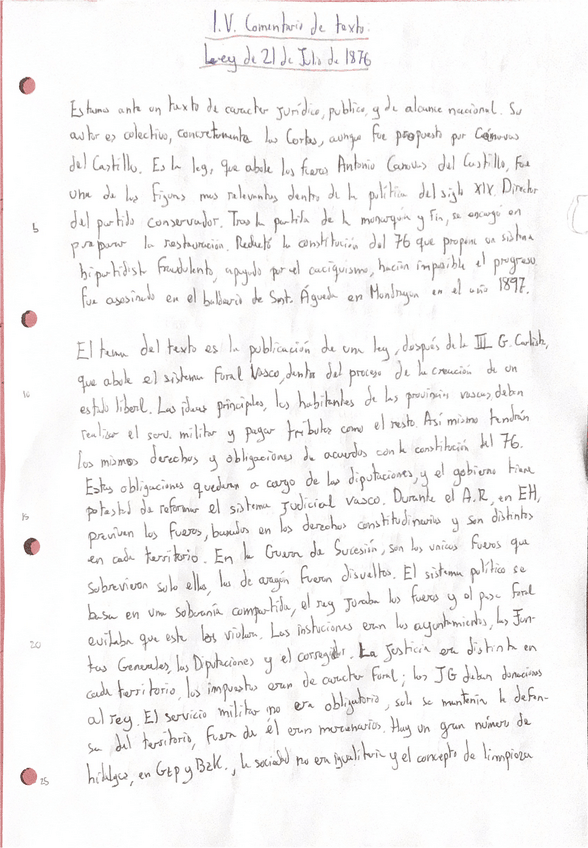 I.V. Comentario de texto.
Ley de 21 de Julio de 1876
Estamos ante un texto de caracter jurídico, publico, y de alcance nacional. Su
autor es colectivo, concretamente las Cortes, aunque fue propuesto por Cánovas
del Castillo. Es la ley, que abole los fueros Antonio Canovas del Castillo, fue
una de las figuras mas relevantes dentro de la política del siglo XIX. Director
5 del partido conservador. Tras la partida de la monarquia y fin, se encargó en
preparar la restauración. Redactó la constitución del 76 que propone un sistema
bipartidista fraudulento, apoyado por el caciquismo, hacían imposible el progreso.
Fue asesinado en el balneario de Sant. Águeda en Mondragon en el año 1897.
El tema del texto es la publicación de una ley, después de la III G. Carlista,
10 que abole el sistema Foral Vasco, dentro del proceso de la creación de un
estado liberal. Las ideas principales, los habitantes de las provincias vascas, deben
realizar el serv. militar y pagar tributos como el resto. Así mismo tendrán
los mismos derechos y obligaciones de acuerdos con la constitución del 76.
Estas obligaciones quedaran a cargo de las diputaciones, y el gobierno tiene
15 potestad de reformar el sistema judicial vasco. Durante el A.R, en EH,
previven los fueros, basados en los derechos constitudinarios y son distintos
en cada territorio. En la Guerra de Sucesión, son los unicos fueros que
sobrevieron solo ellos, los de aragón fueron disueltos. El sistema político se
basa en una soberanía compartida, el rey juraba los fueros y el pase foral
20 evitaba que este los violara. Las instuciones eran los ayuntamientos, las Jun-
tas Generales, las Diputaciones y el corregidor. La justicia era distinta en
cada territorio, los impuestos eran de caracter foral; las JG daban donaciones
al rey. El servicio militar no era obligatorio, solo se mantenia la defen-
sa del territorio, fuera de él eran mercenarios. Hay un gran número de
25 hidalgos, en Gzp y Bzk., la sociedad no era igualitaria y el concepto de limpieza